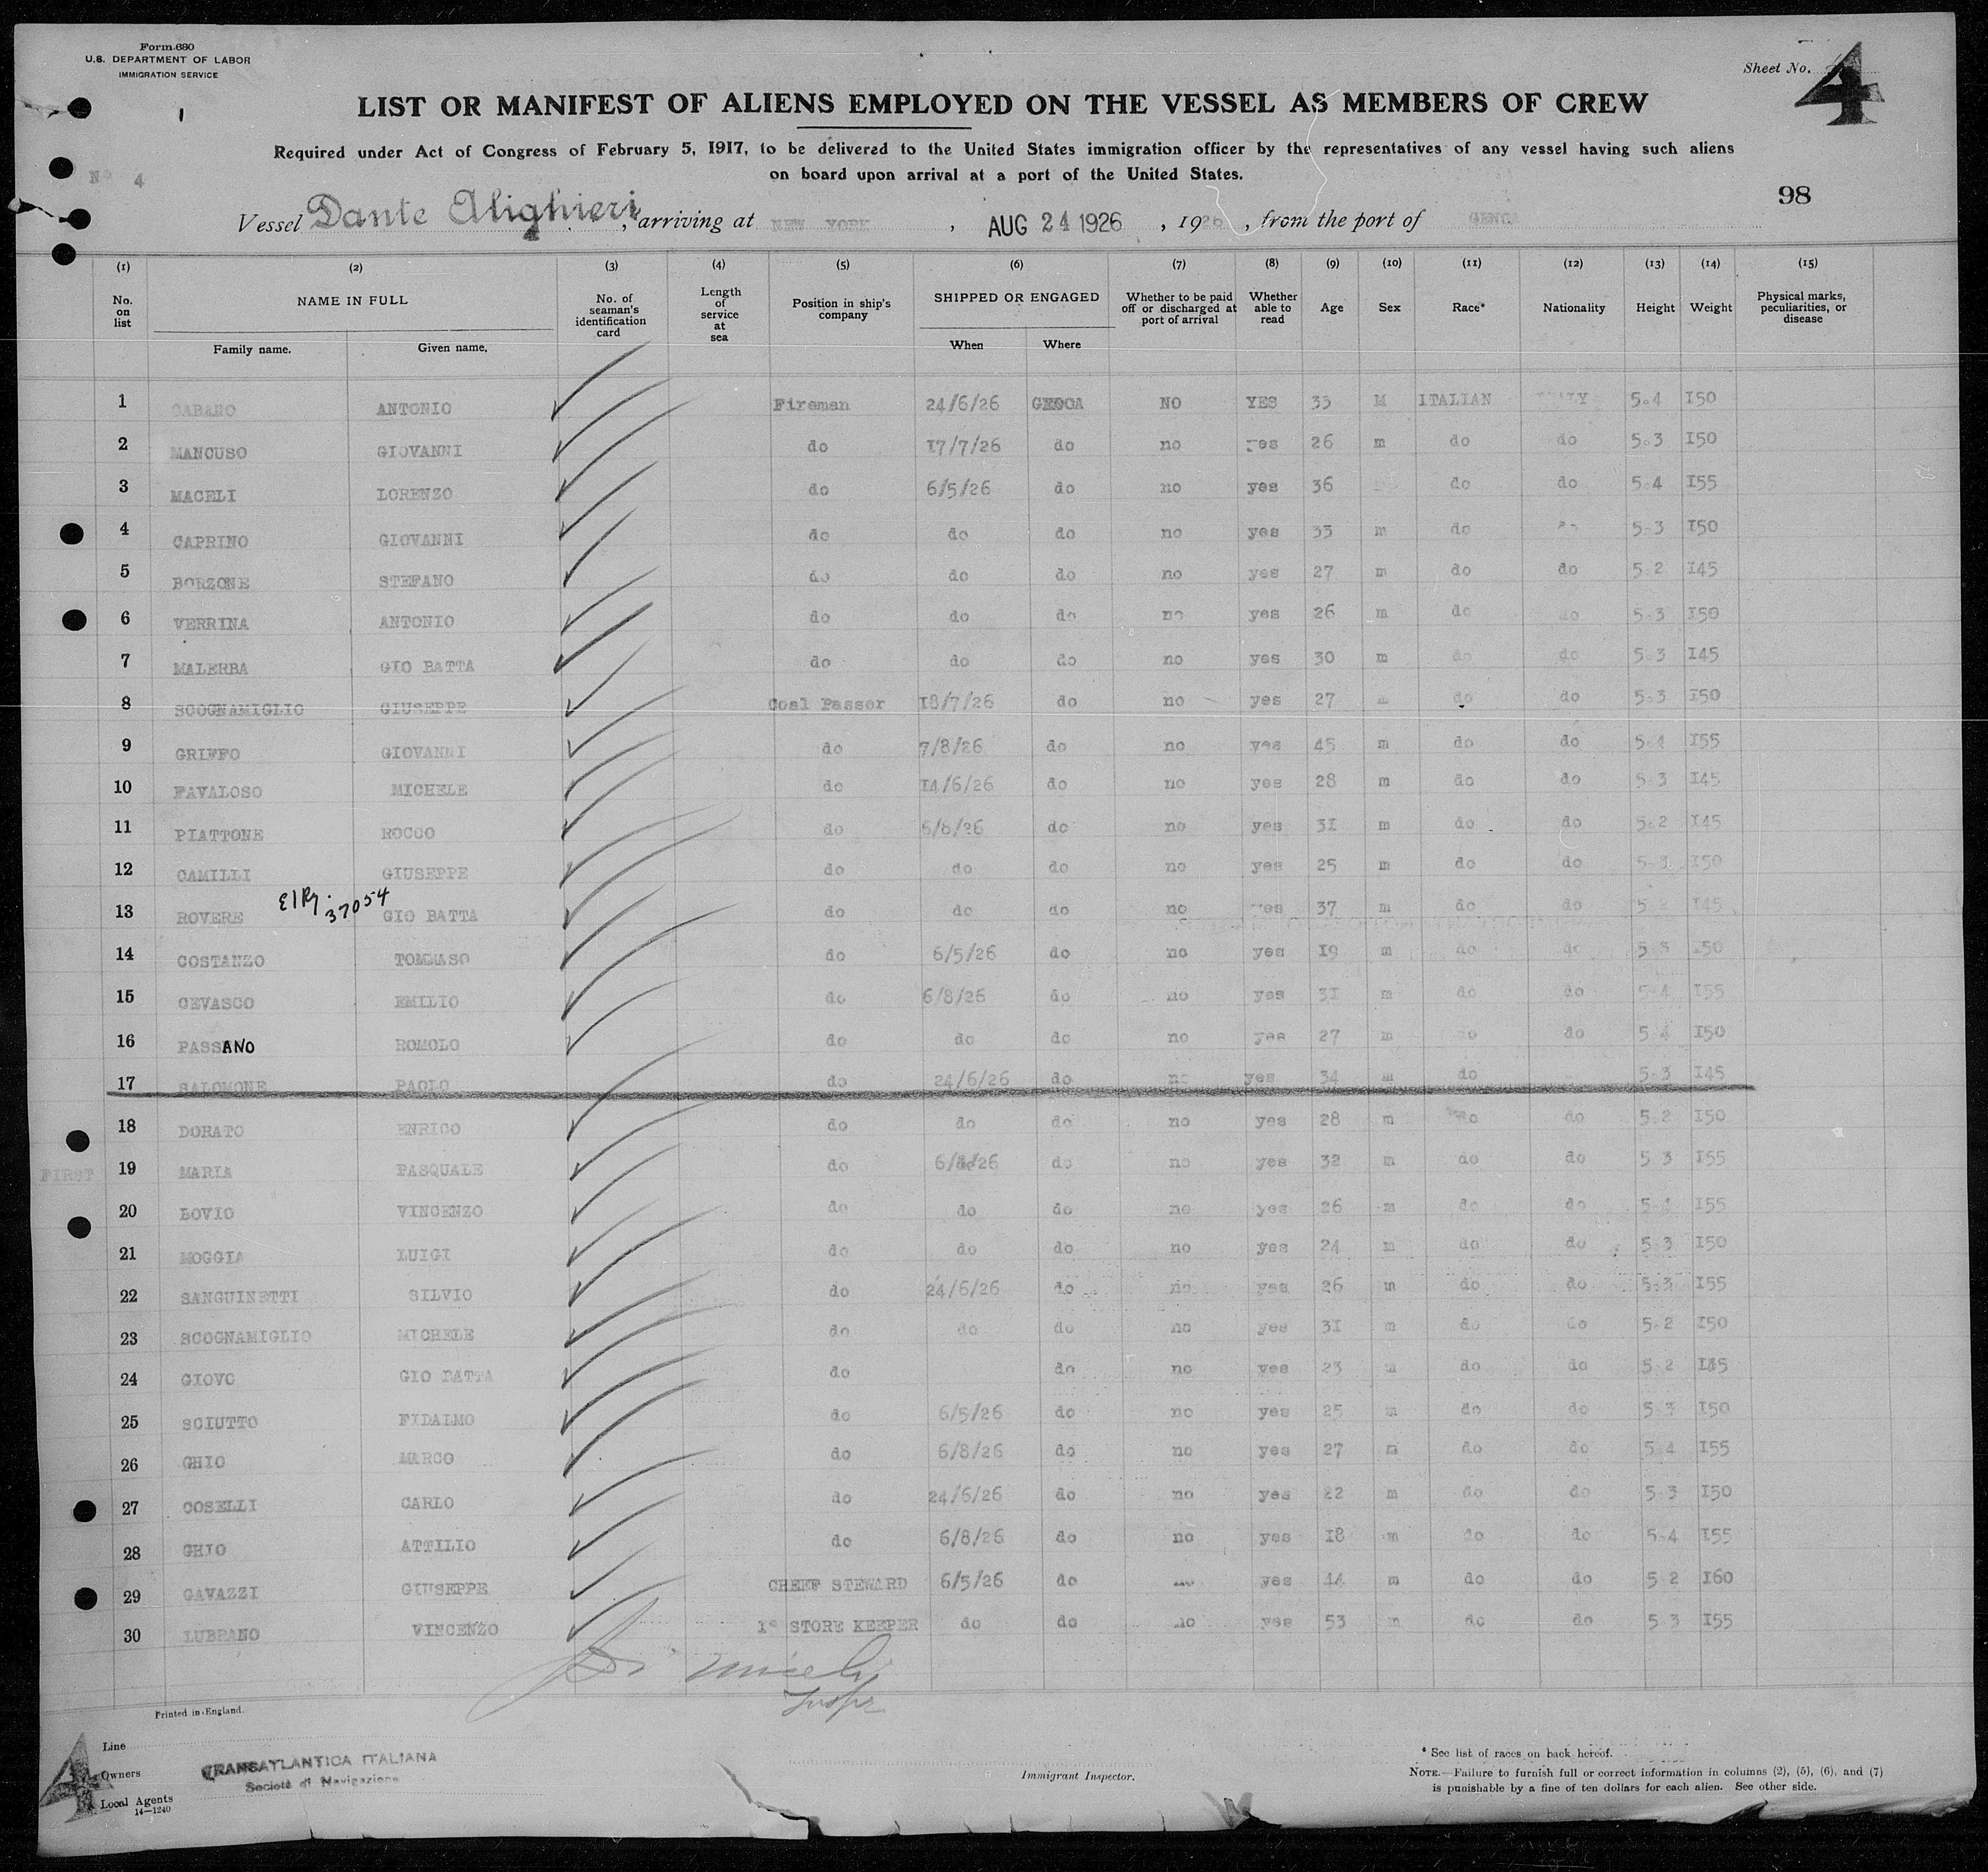 Form 680
U.S. DEPARTMENT OF LABOR
IMMIGRATION SERVICE
Sheet No. 4
LIST OR MANIFEST OF ALIENS EMPLOYED ON THE VESSEL AS MEMBERS OF CREW
Required under Act of Congress of February 5, 1917, to be delivered to the United States immigration officer by the representatives of any vessel having such aliens
on board upon arrival at a port of the United States.
No 4
98
Vessel Dante Alighieri, arriving at NEW YORK, AUG 24 1926, 1926, from the port of GENOA
(1) (2) (3) (4) (5) (6) (7) (8) (9) (10) (11) (12) (13) (14) (15)
No. on list NAME IN FULL Family name. Given name. No. of seaman's identification card Length of service at sea Position in ship's company SHIPPED OR ENGAGED When Where Whether to be paid off or discharged at port of arrival Whether able to read Age Sex Race* Nationality Height Weight Physical marks, peculiarities, or disease
1 CABANO ANTONIO Fireman 24/6/26 GENOA NO YES 33 M ITALIAN ITALY 5-4 150
2 MANCUSO GIOVANNI do 17/7/26 do no yes 26 m do do 5-3 150
3 MACELI LORENZO do 6/5/26 do no yes 36 do do 5-4 155
4 CAPRINO GIOVANNI do do do no yes 33 m do do 5-3 150
5 BORZONE STEFANO do do do no yes 27 m do do 5-2 145
6 VERRINA ANTONIO do do do no yes 26 m do do 5-3 150
7 MALERBA GIO BATTA do do do no yes 30 m do do 5-3 145
8 SCOGNAMIGLIO GIUSEPPE Coal Passer 18/7/26 do no yes 27 m do do 5-3 150
9 GRIFFO GIOVANNI do 7/8/26 do no yes 45 m do do 5-4 155
10 FAVALOSO MICHELE do 14/6/26 do no yes 28 m do do 5-3 145
11 PIATTONE ROCCO do 6/8/26 do no yes 31 m do do 5-2 145
12 CAMILLI GIUSEPPE do do do no yes 25 m do do 5-3 150
13 ROVERE 37054 GIO BATTA do do do no yes 37 m do do 5-2 145
14 COSTANZO TOMMASO do 6/5/26 do no yes 19 m do do 5-3 150
15 CEVASCO EMILIO do 6/8/26 do no yes 31 m do do 5-4 155
16 PASSANO ROMOLO do do do no yes 27 m do do 5-4 150
17 SALOMONE PAOLO do 24/6/26 do no yes 34 m do 5-3 145
18 DORATO ENRICO do do do no yes 28 m do do 5-2 150
FIRST 19 MARIA PASQUALE do 6/8/26 do no yes 32 m do do 5-3 155
20 BOVIO VINCENZO do do do no yes 26 m do do 5-4 155
21 MOGGIA LUIGI do do do no yes 24 m do do 5-3 150
22 SANGUINETTI SILVIO do 24/6/26 do no yes 26 m do do 5-3 155
23 SCOGNAMIGLIO MICHELE do do do no yes 31 m do do 5-2 150
24 GIOVO GIO BATTA do do no yes 23 m do do 5-2 145
25 SCIUTTO FIDALMO do 6/5/26 do no yes 25 m do do 5-3 150
26 GHIO MARCO do 6/8/26 do no yes 27 m do do 5-4 155
27 COSELLI CARLO do 24/6/26 do no yes 22 m do do 5-3 150
28 GHIO ATTILIO do 6/8/26 do no yes 18 m do do 5-4 155
29 GAVAZZI GIUSEPPE CHEEF STEWARD 6/5/26 do no yes 44 m do do 5-2 160
30 LUBRANO VINCENZO 1° STORE KEEPER do do no yes 53 m do do 5-3 155
Printed in England.
4
Line
Owners
Local Agents
14—1240
TRANSATLANTICA ITALIANA
Società di Navigazione
Immigrant Inspector.
* See list of races on back hereof.
NOTE.—Failure to furnish full or correct information in columns (2), (5), (6), and (7)
is punishable by a fine of ten dollars for each alien. See other side.